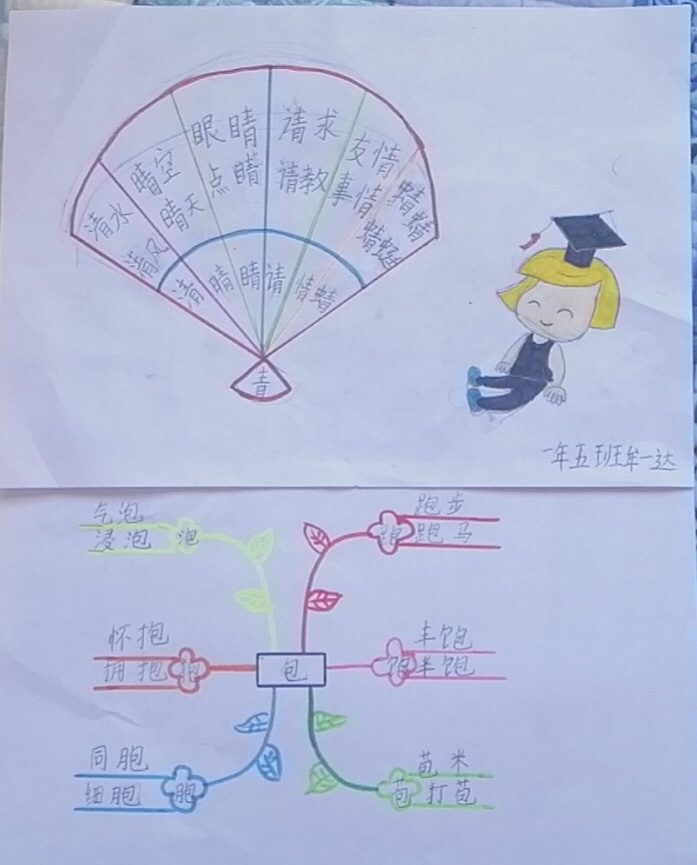 清水
清风
晴空
晴天
眼睛
点睛
请求
请教
友情
事情
蜻蜻
蜻蜓
清 晴 睛 请 情 蜻
青
一年五班牟一达
气泡
浸泡
泡
跑步
跑 跑马
怀抱
拥抱 抱
包
丰饱
饱 半饱
同胞
细胞 胞
苞米
苞 打苞